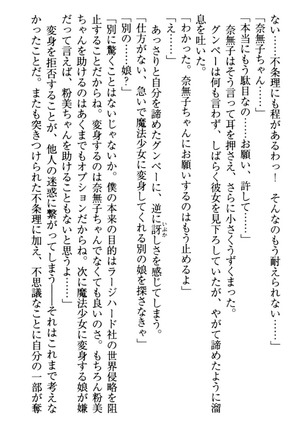 ない……不条理にも程があるわっ！　そんなのもう耐えられない……
「奈無子ちゃん……」
「本当にもう駄目なの……お願い、許して……」
　奈無子はそう言って耳を押さえ、さらに小さくうずくまった。
　グンペーは何も言わず、しばらく彼女を見下ろしていたが、やがて諦めたように溜
息を吐いた。
「わかった。奈無子ちゃんにお願いするのはもう止めるよ」
「え……」
　あっさりと自分を諦めたグンペーに、逆に訝しさを感じてしまう。
「仕方がない、急いで魔法少女に変身してくれる別の娘を探さなきゃ」
「別の……娘？」
「別に驚くことはないじゃないか。僕の本来の目的はラージハード社の世界侵略を阻
止することだからね。変身するのは奈無子ちゃんでなくても良いのさ。もちろん粉美
ちゃんを助けるのはあくまでもオプションだからね。次に魔法少女に変身する娘が嫌
だって言えば、粉美ちゃんを助けることもないと思うよ……」
　変身を拒否することが、他人の迷惑に繋がってしまう――それはこれまで考えな
かったことだ。またも突きつけられた不条理に加え、不思議なことに自分の一部が奪